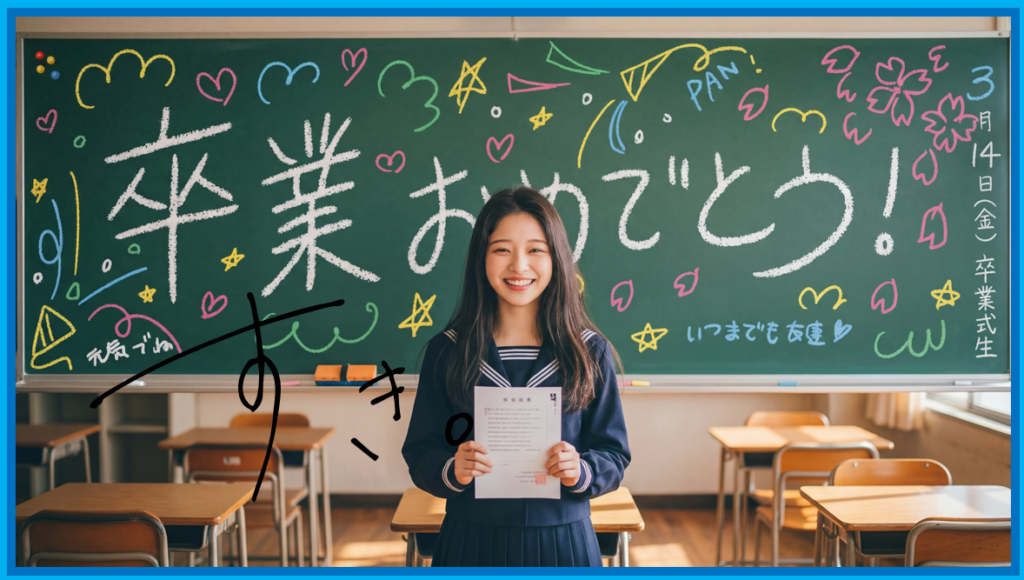 卒業おめでとう!
PAN
3月14日(金)卒業式生
元気でね
いつまでも友達
すき。